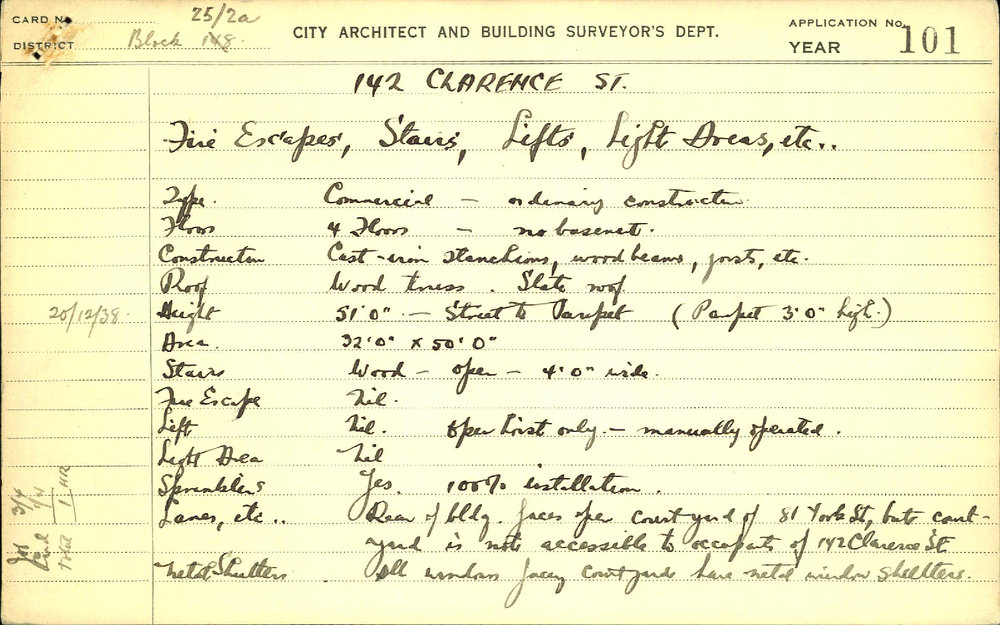 CARD No. 25/2a
DISTRICT Block 148.
CITY ARCHITECT AND BUILDING SURVEYOR'S DEPT.
APPLICATION No. 101
YEAR
142 CLARENCE ST.
Fire Escapes, Stairs, Lifts, Light Areas, etc..
Type. Commercial — ordinary construction.
Floors 4 Floors — no basement.
Construction Cast-iron stanchions, wood beams, joists, etc.
Roof Wood truss. Slate roof
20/12/38. Height 51'0" — Street to Parapet (Parapet 3'0" high.)
Area. 32'0" x 50'0"
Stairs Wood — open — 4'0" wide.
Fire Escape Nil.
Lift Nil. Open hoist only. — manually operated.
Light Area Nil
Sprinklers Yes. 100% installation.
Lanes, etc.. Rear of bldg. faces open courtyard of 81 York St, but court-
yard is not accessible to occupants of 142 Clarence St
Metal Shutters. All windows facing courtyard have metal window shutters.
3/4
1/4
Total 1 HR